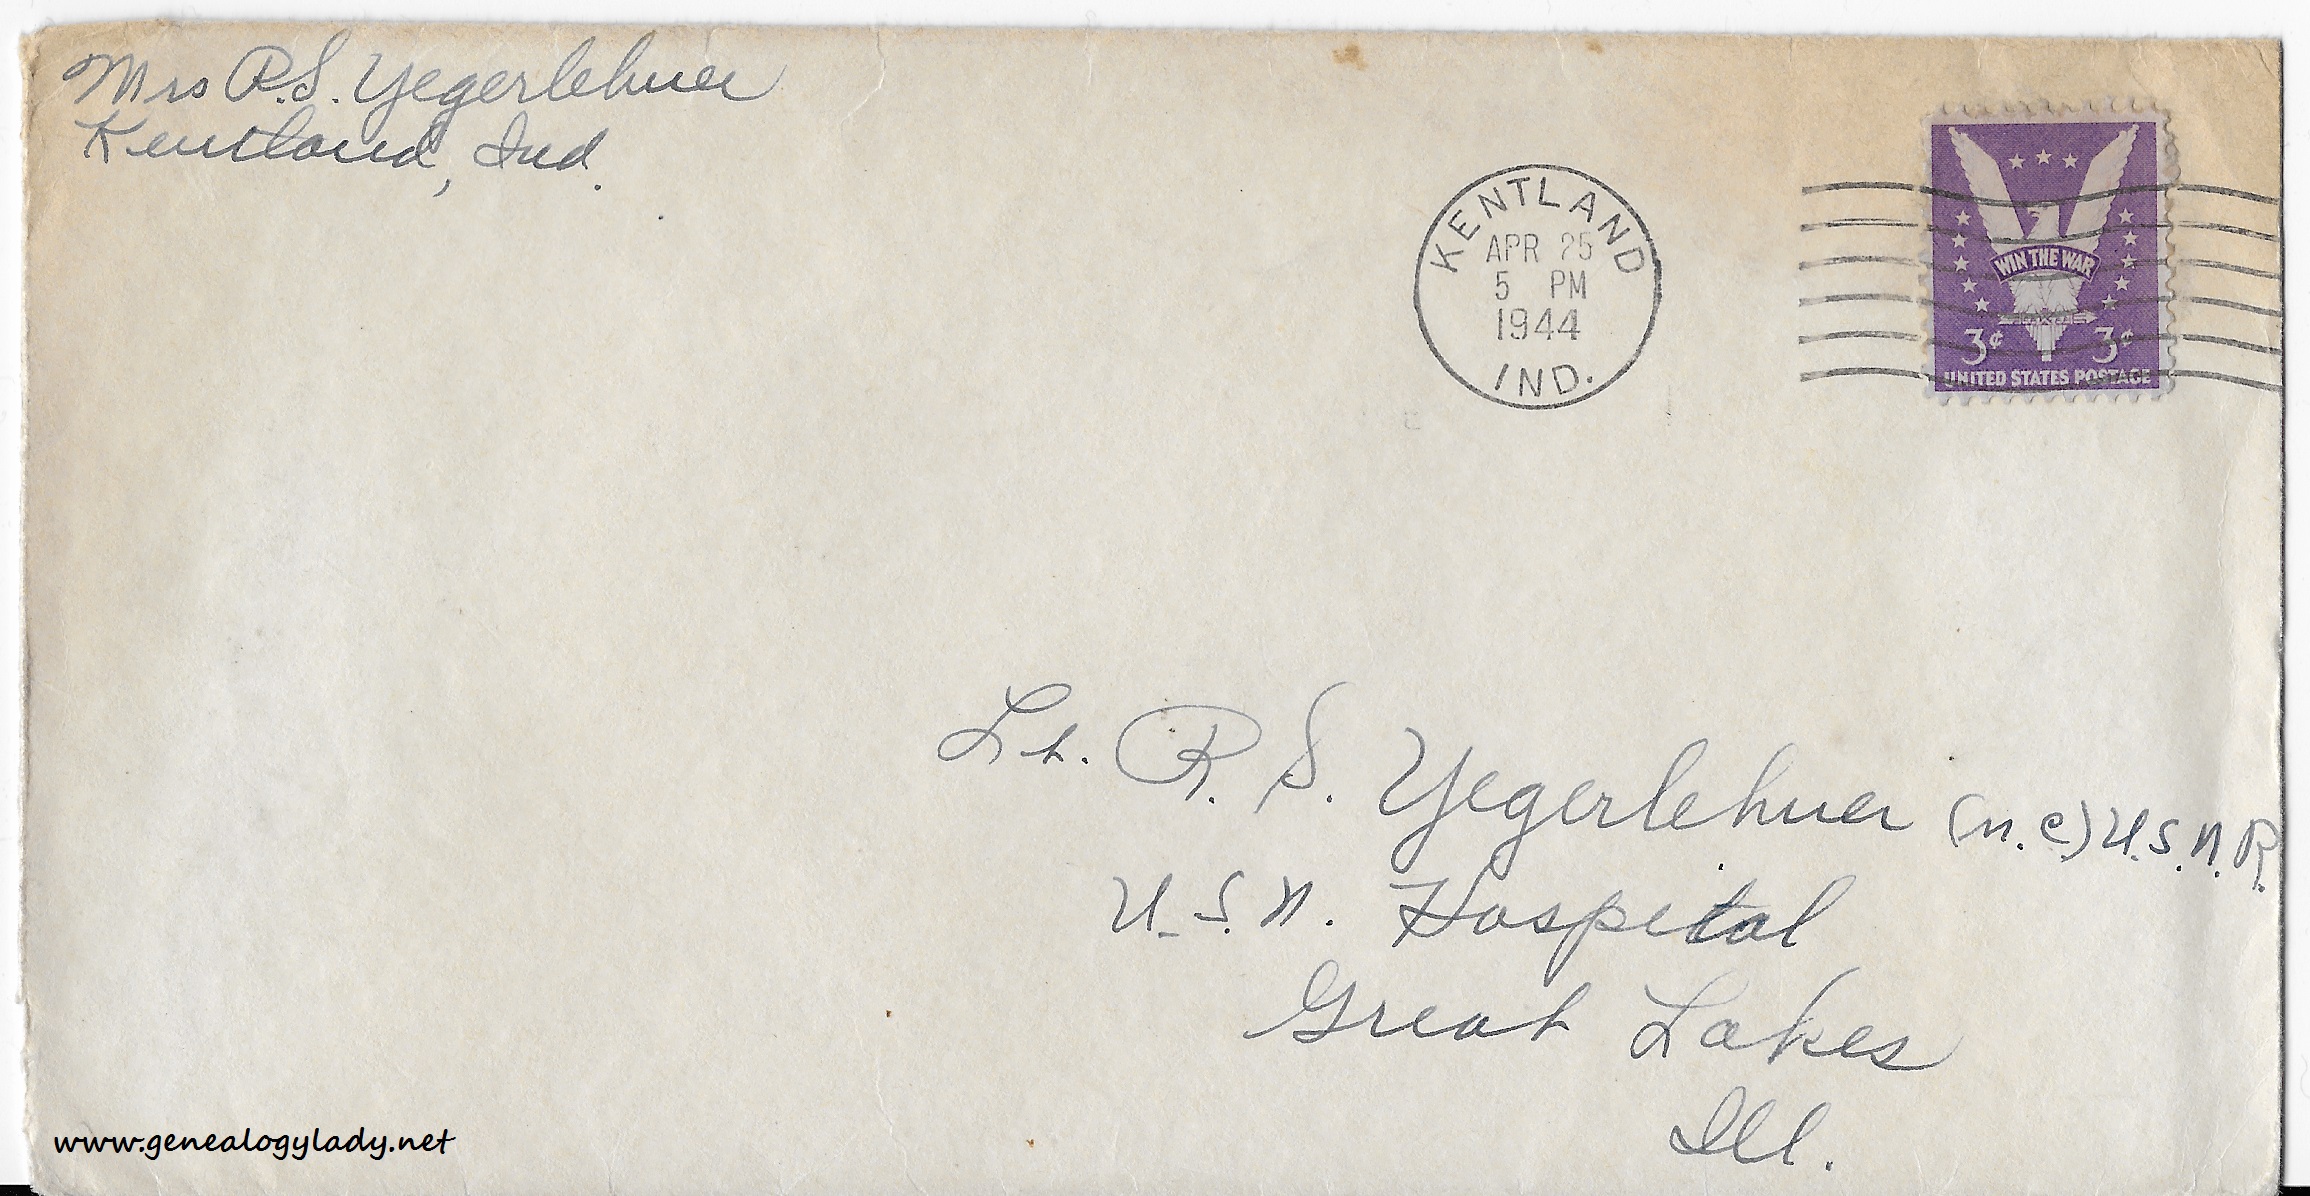 Mrs R.S. Yegerlehner
Kentland, Ind.
KENTLAND
APR 25
5 PM
1944
IND.
WIN THE WAR
3¢ 3¢
UNITED STATES POSTAGE
Lt. R. S. Yegerlehner (M.C.) U.S.N.R.
U.S.N. Hospital
Great Lakes
Ill.
www.genealogylady.net